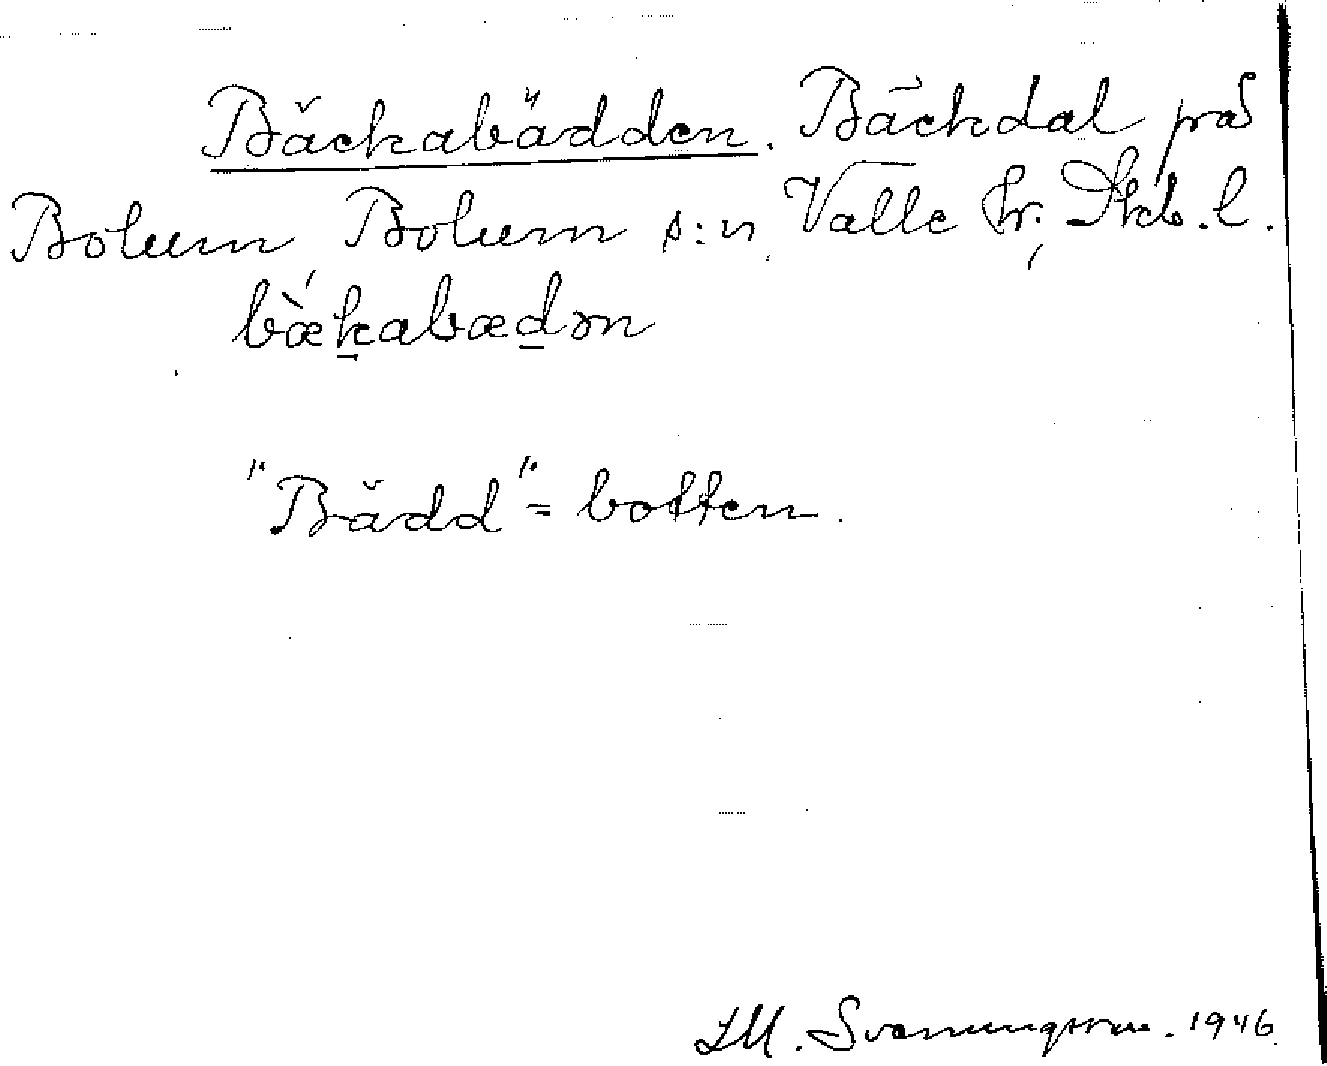 Bäckabädden. Bäckdal på
Bolum Bolum s:n Valle hr. Skb. l.
bæ̀kabædən
"Bädd" = botten.
Svenungsson. 1946